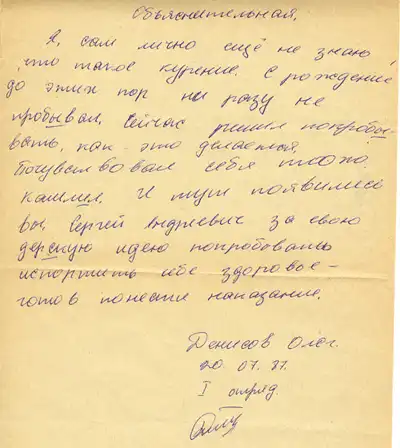 Объяснительная.
Я, сам лично ещё не знаю,
что такое курение. С рождение
до этих пор ни разу не
пробывал. Сейчас решил попробы-
вать, как это делается.
Почувствовал себя плохо
кашлял. И тут появились
вы, Сергей Андреевич за свою
дерскую идею попробовать
испортить себе здоровое-
готов понести наказание.
Денисов Олег.
20. 07. 87.
I отряд.